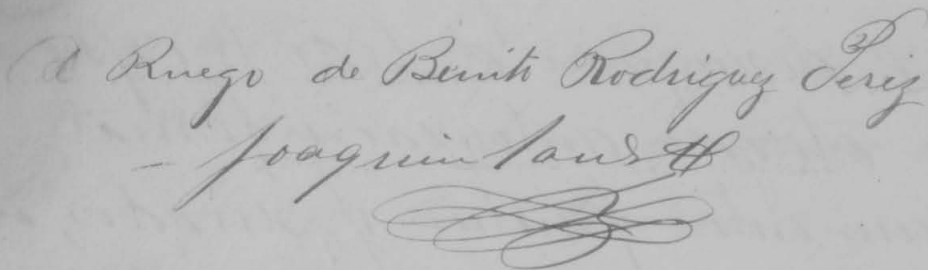 A Ruego de Benito Rodriguez Perez
Joaquin